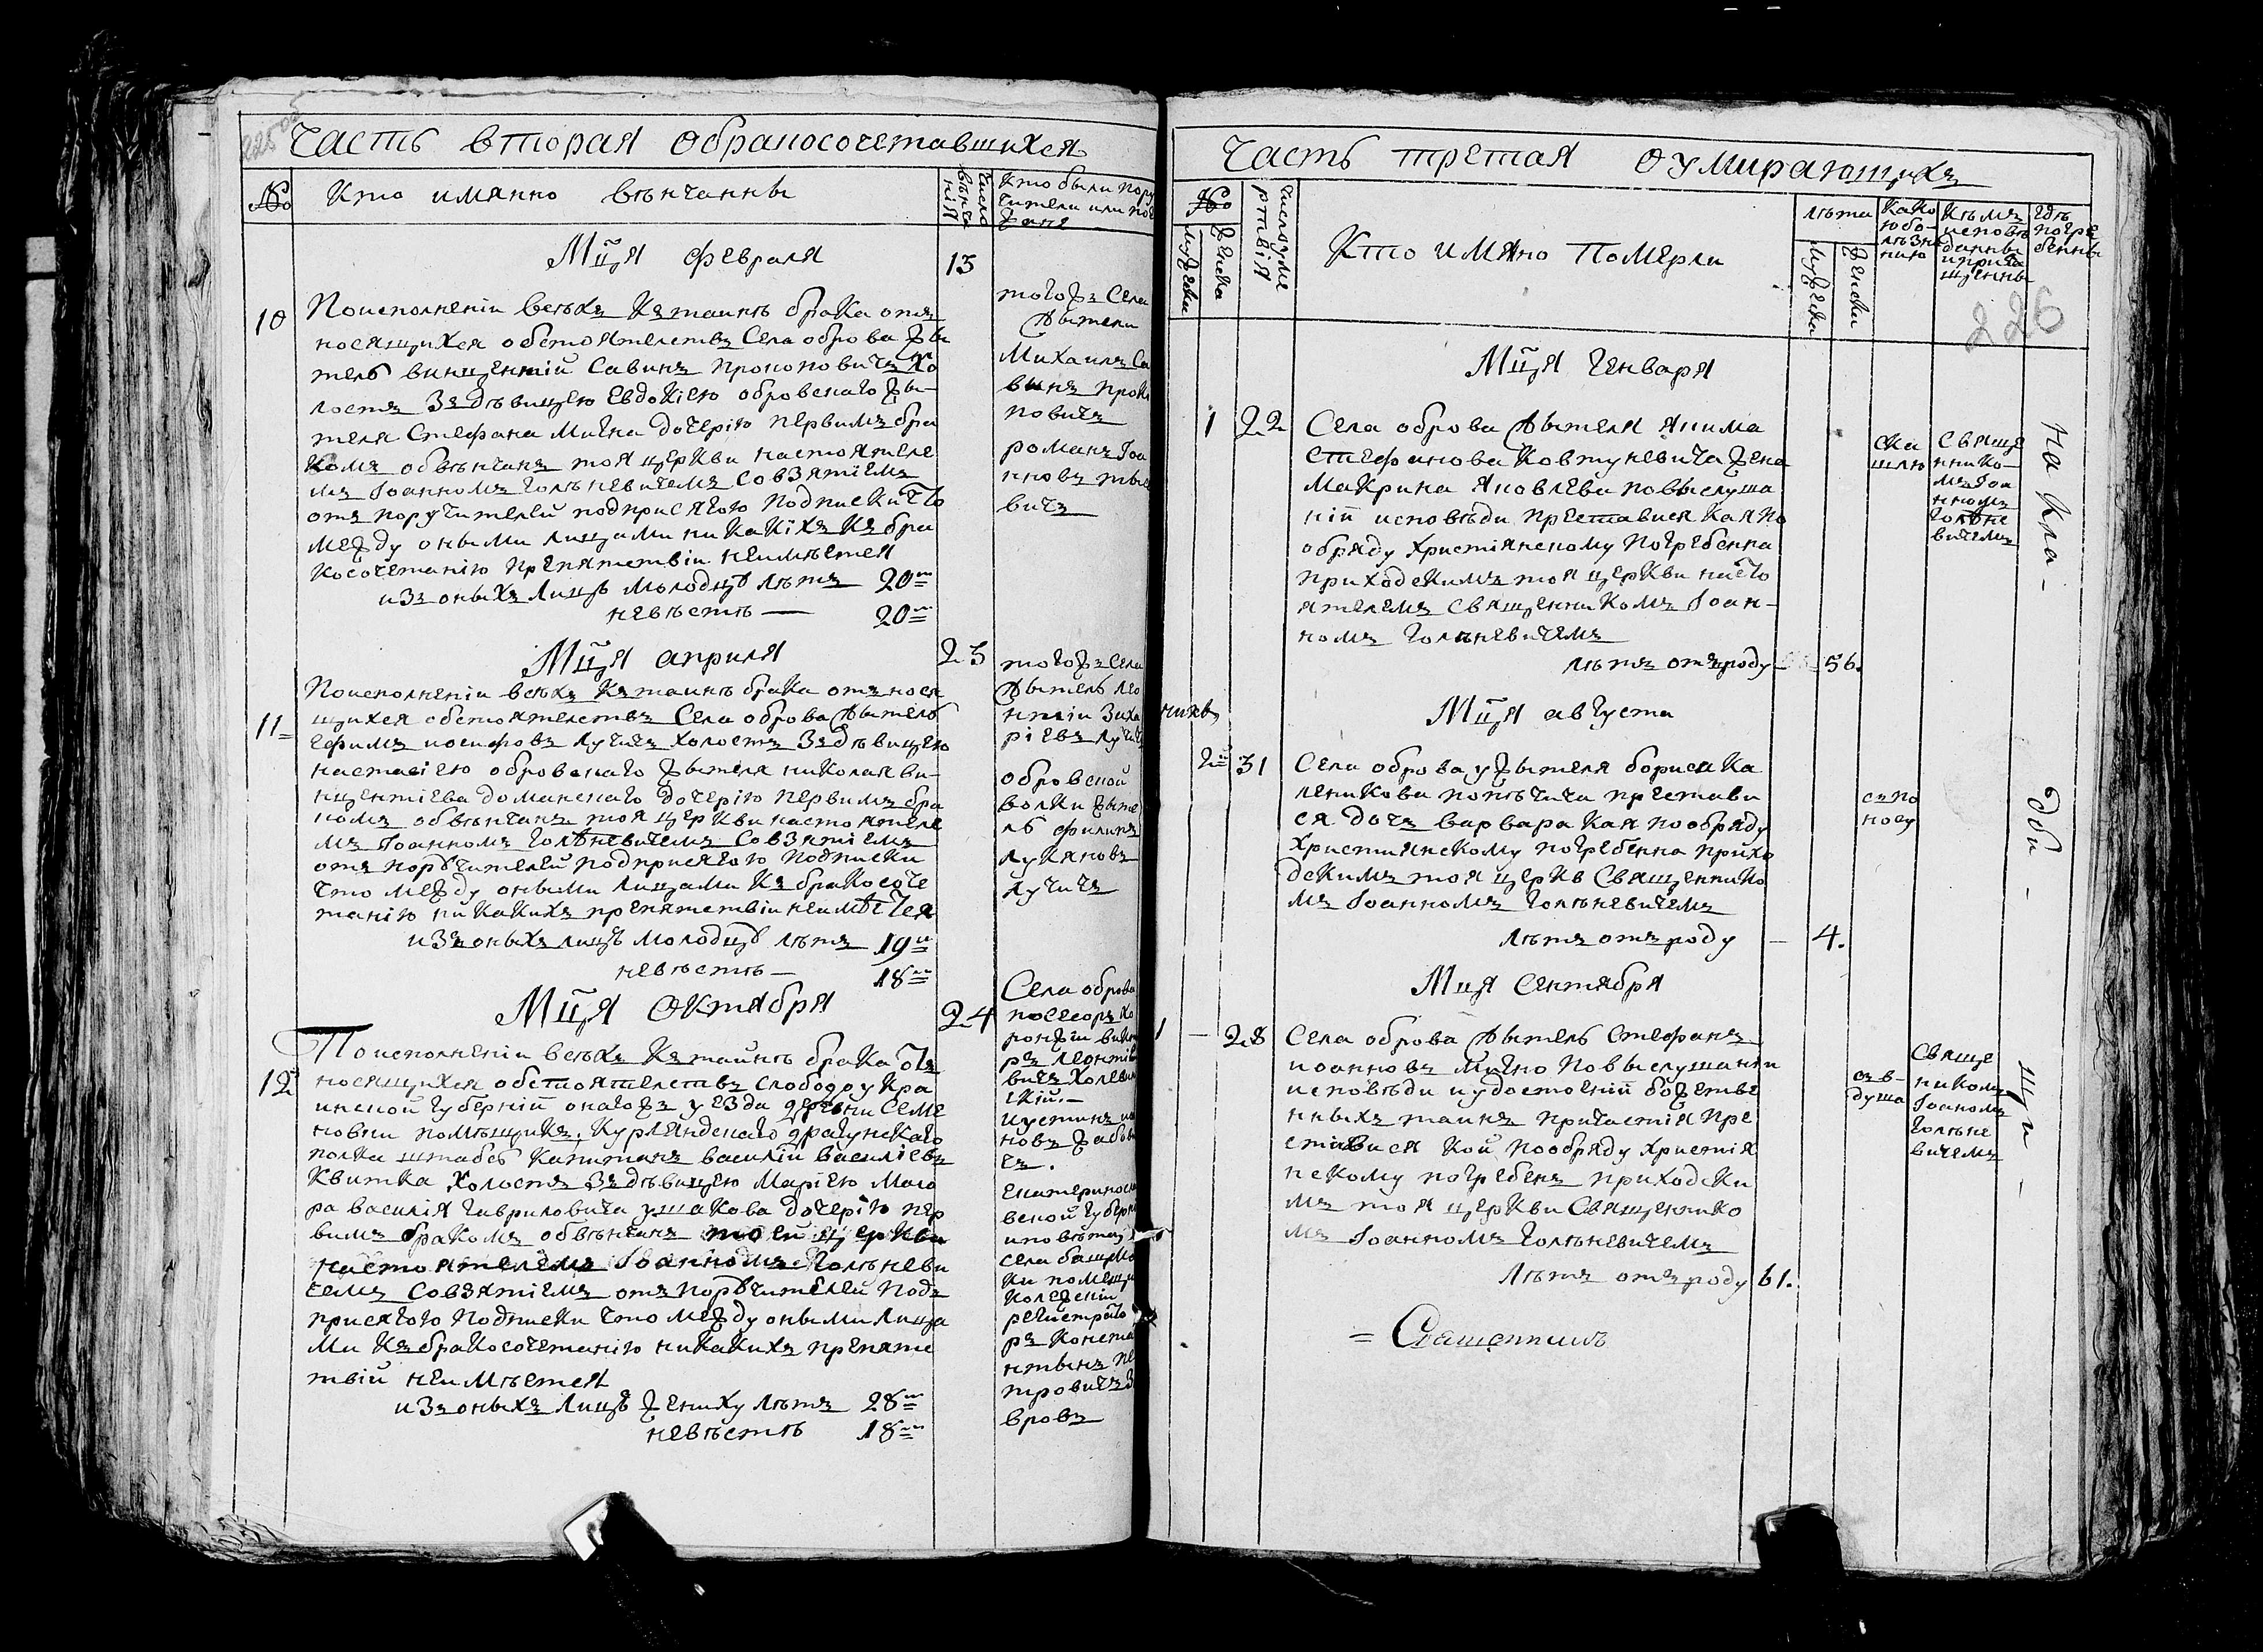 Часть вторая обракосочетавшихся
№
Кто имянно вѣнчанны
число вѣнчанія
Кто были пору
чители или по
Мцⷭ҇я февраля
13
10
Поисполненіи всѣхъ Къ таинѣ брака отъ
носящихся обстоятелствъ Села оброва жы
тель винцентій Савинъ Прокоповичъ Хо
лостъ Зъ дѣвицею Евдокіею обровскаго жы-
теля Стефана Мичка дочерію первимъ бра
комъ обвѣнчанъ тоя церкви настоятеле
мъ Іоанномъ Голѣневичемъ Совзятіемъ
отъ поручителей подприсягою Подписки что
между оными лицами никакіхъ къ бра
косочетанію препятствіи неимѣется
изъ оныхъ Лицъ молодцу лѣтъ 20
невѣстѣ — 20
тогожъ Села
жытели
Михаилъ Са
винъ Проко
повичъ
романъ Іоа
нновъ
вичъ
Мцⷭ҇я априля
23
11
Поисполненіи всѣхъ Къ таинѣ брака отъ нося
щихся обстоятелствъ Села оброва жытель
Ефимъ иосифовъ лучичъ холостъ Зъ дѣвицею
настасіею обровскаго жытеля николая ви-
нцентіева доманскаго дочерію первимъ бра
комъ обвѣнчанъ тоя церкви настоятеле
мъ Іоанномъ Голѣневичемъ Совзятіемъ
отъ поручителей подприсягою Подписки
что между оными лицами къ бракосоче
танію никакихъ препятствіи неимѣется
изъ оныхъ лицъ молодцу лѣтъ 19
невѣстѣ — 18
тогожъ Села
жытель лео
нтіи Заха
ріевъ лучичъ
обровской
волки жыте
ль филипъ
лукяновъ
лучичъ
Мцⷭ҇я Октября
24
12
Поисполненіи всѣхъ Къ таинѣ брака отъ
носящихся обстоятелствъ Слободоукра
инской губерніи онагожъ уезда деревни Семе
новки помѣщикъ, Курляндскаго драгунскаго
полка штабсъ Капитанъ василіи василіевъ
Квитка Холостъ Зъ дѣвицею Маріею Маіо
ра василія гавриловича ушакова дочерію пер
вимъ бракомъ обвѣнчанъ тоей церкви
настоятелемъ Іоанномъ Голѣневи
чемъ Совзятіемъ отъ поручителей Подъ
присягою Подписки что между оными лица
ми къ бракосочетанію никакихъ препятс
твій неимѣется
изъ оныхъ Лицъ жениху лѣтъ 28
невѣстѣ 18
Села оброва
посесоръ хо
ронжіи викто
ръ леонтіе
вичъ Холевин
скій.
иустинъ
новъ
чъ.
Екатеринос
вской губер
села
ки помещи
колежскіи
регистрато
ръ Конста
нтынъ Пе
тровичъ
вровъ
Часть третая о умирающихъ
№
мужеска
женска
число умертвія
Кто имяно Померли
лѣта
мужеска
женски
Како
ю бо-
лѣзн
нию
Кѣмъ
исповѣ
данны
и приоб
щенны
гдѣ
погре
бенны
226
Мцⷭ҇я Генваря
1
22
Села оброва жытеля якима
Стефанова Ковтуневича жена
Макрина яковлева повыслуша
ніи исповѣди преставися Кая по
обряду христіянскому погребенна
приходскимъ тоя церкви насто
ятелемъ Священникомъ Іоан-
номъ Голѣневичемъ
лѣтъ отъ роду 56.
Свяще
нико-
мъ Іоа
нномъ
Голѣне
вичемъ
На Кла-
дби-
щи-
Мцⷭ҇я августа
2
31
Села оброва ужытеля бориса Ка
леникова попѣчича престави
ся дочъ варвара кая пообряду
християнскому погребенна прихо
дскимъ тоя церкв Священнико
мъ Іоанномъ Голѣневичемъ
лѣтъ отъ роду — 4.
съ по
носу
Мця Сентября
1 — 28
Села оброва жытель Стефанъ
иоанновъ Мичко Повыслушаніи
исповѣди и удостоеніи божестве
нныхъ таинъ причастія Пре
ставися Кой пообряду Христия
нскому погребенъ приходски
мъ тоя церкви Священнико
мъ Іоанномъ Голѣневичемъ
лѣтъ отъ роду 61.
Свяще
никомъ
Іоаномъ
Голѣне
вичемъ
= Священникъ